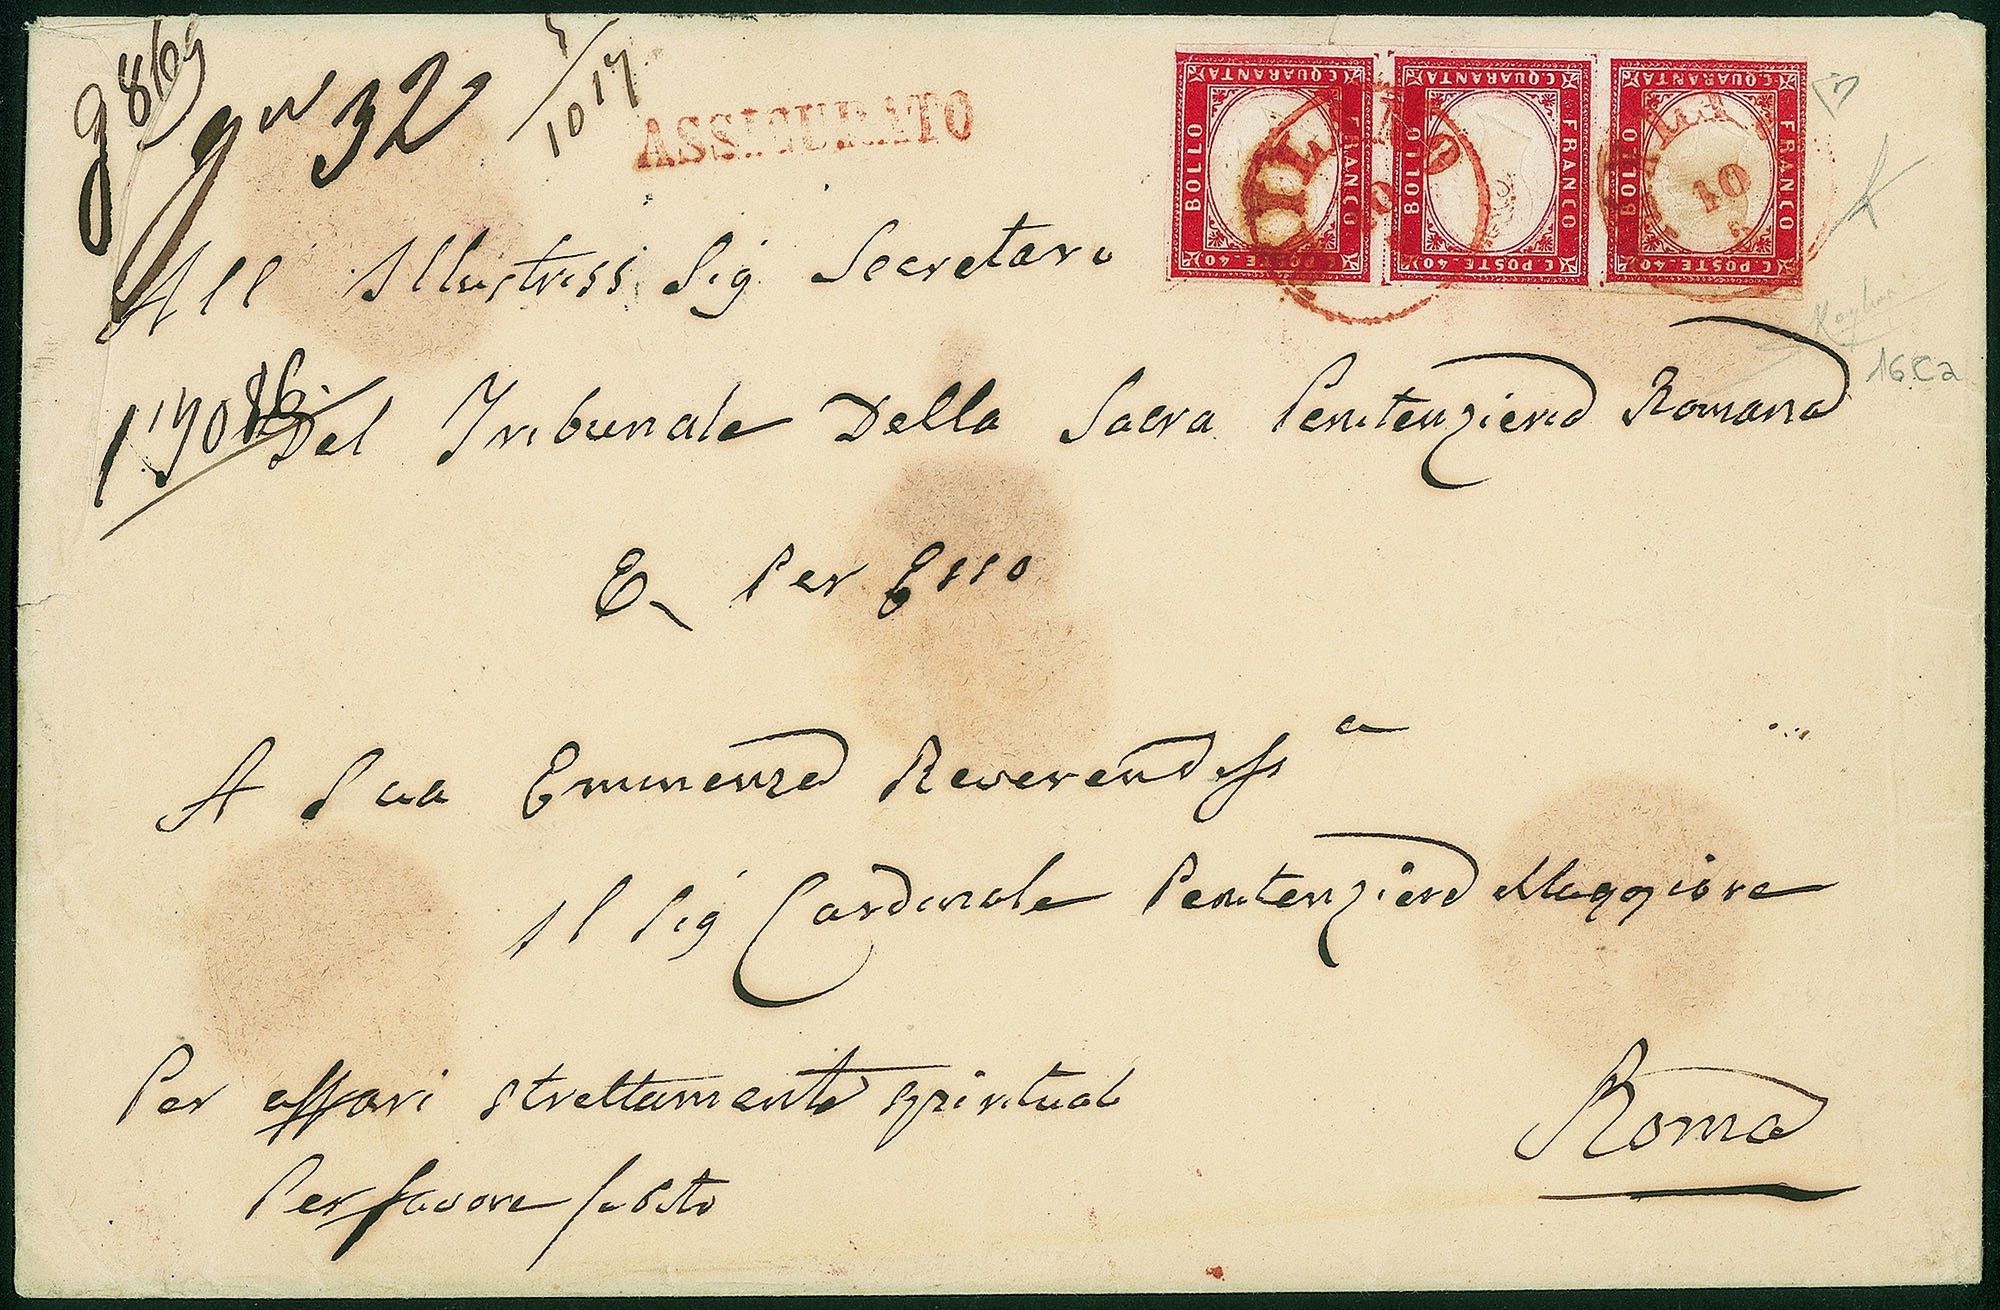 9869
gr 32
10 17
ASSICURATO
C. QUARANTA C. QUARANTA C. QUARANTA
BOLLO FRANCO BOLLO FRANCO BOLLO FRANCO
C. POSTE. 40 C. POSTE. 40 C. POSTE. 40
MILANO
10
All Illustriss Sig Secretario
17086
Del Tribunale Della Sacra Penitenzieria Romana
16Ca
E Per Esso
A Sua Eminenza Reverendiss a
Al Sig Cardinale Penitenziere Maggiore
Per affari strettamente spirituali
Roma
Per favore subito